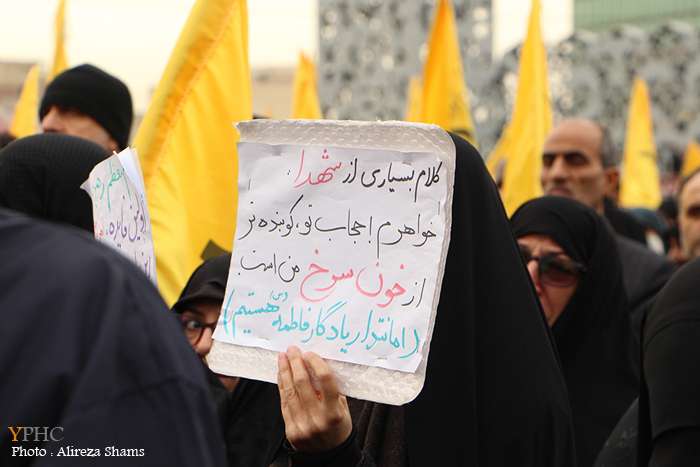 کلام بسیاری از شهدا
خواهرم! حجاب تو، کوبنده تر
از خون سرخ من است
(امانتدار یادگار فاطمه (س) هستیم)
معظم
اولین
فایده
YPHC
Photo : Alireza Shams